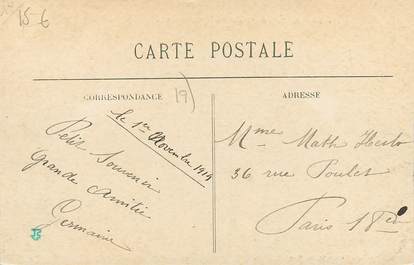 15-6
CARTE POSTALE
CORRESPONDANCE
19)
ADRESSE
le 1er Novembre 1914
Petit Souvenir
Grande Amitié
Germaine
Mme Math
36 rue Poulet
Paris 18e